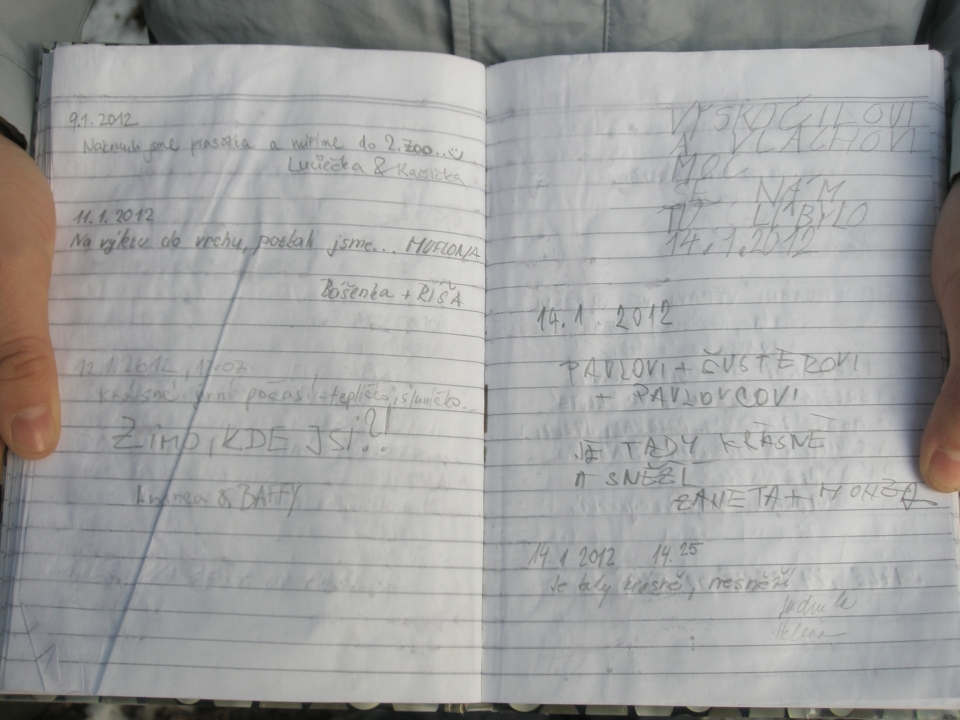 9.1.2012
Nakrmili jsme prasátka a míříme do 2. ZOO..
Lucička & Kačička
11.1.2012
Na výletu do vrchu, potkali jsme... MUFLONA
Bóšenka + RÍŠA
12.1.2012, 17.07
krásné jarní počasí, teplíčko, sluníčko...
ZIMO, KDE JSI?!
Andrea & BAFFY
VYSKOČILOVI
A VLACHOVI
MOC
SE NÁM
TU LÍBYLO
14.1.2012
14.1.2012
PAVLOVI + ČUSTEROVI
+ PAVLOVCOVI
JE TADY KRÁSNĚ
A SNĚŽÍ
ŽANETA + HONZA
14.1 2012 14.25
Je tady krásně, nesněží
Ludmila
Helena